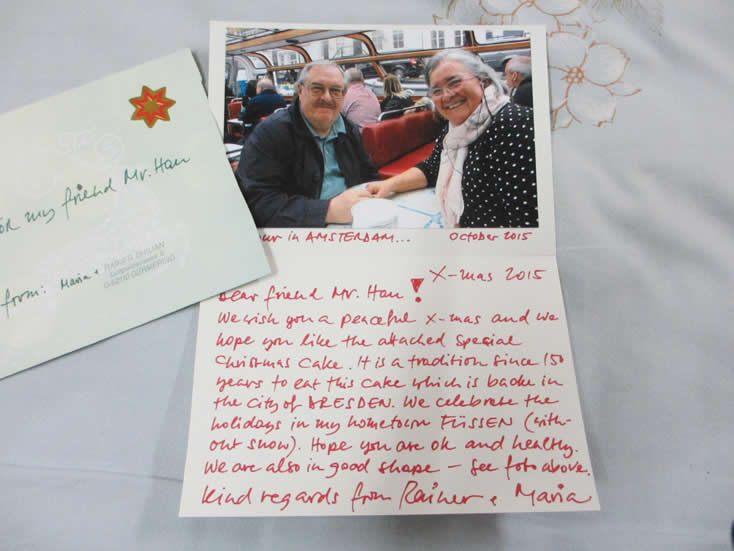 my friend Mr. Han
from: Maria +
RAINER
GERMERING
our in AMSTERDAM... October 2015
X-mas 2015
Dear friend Mr. Han!
We wish you a peaceful X-mas and we
hope you like the attached special
Christmas cake. It is a tradition since 150
years to eat this cake which is backe in
the city of DRESDEN. We celebrate the
holidays in my hometown FÜSSEN (with-
out snow). Hope you are ok and healthy.
We are also in good shape – see foto above.
Kind regards from Rainer + Maria